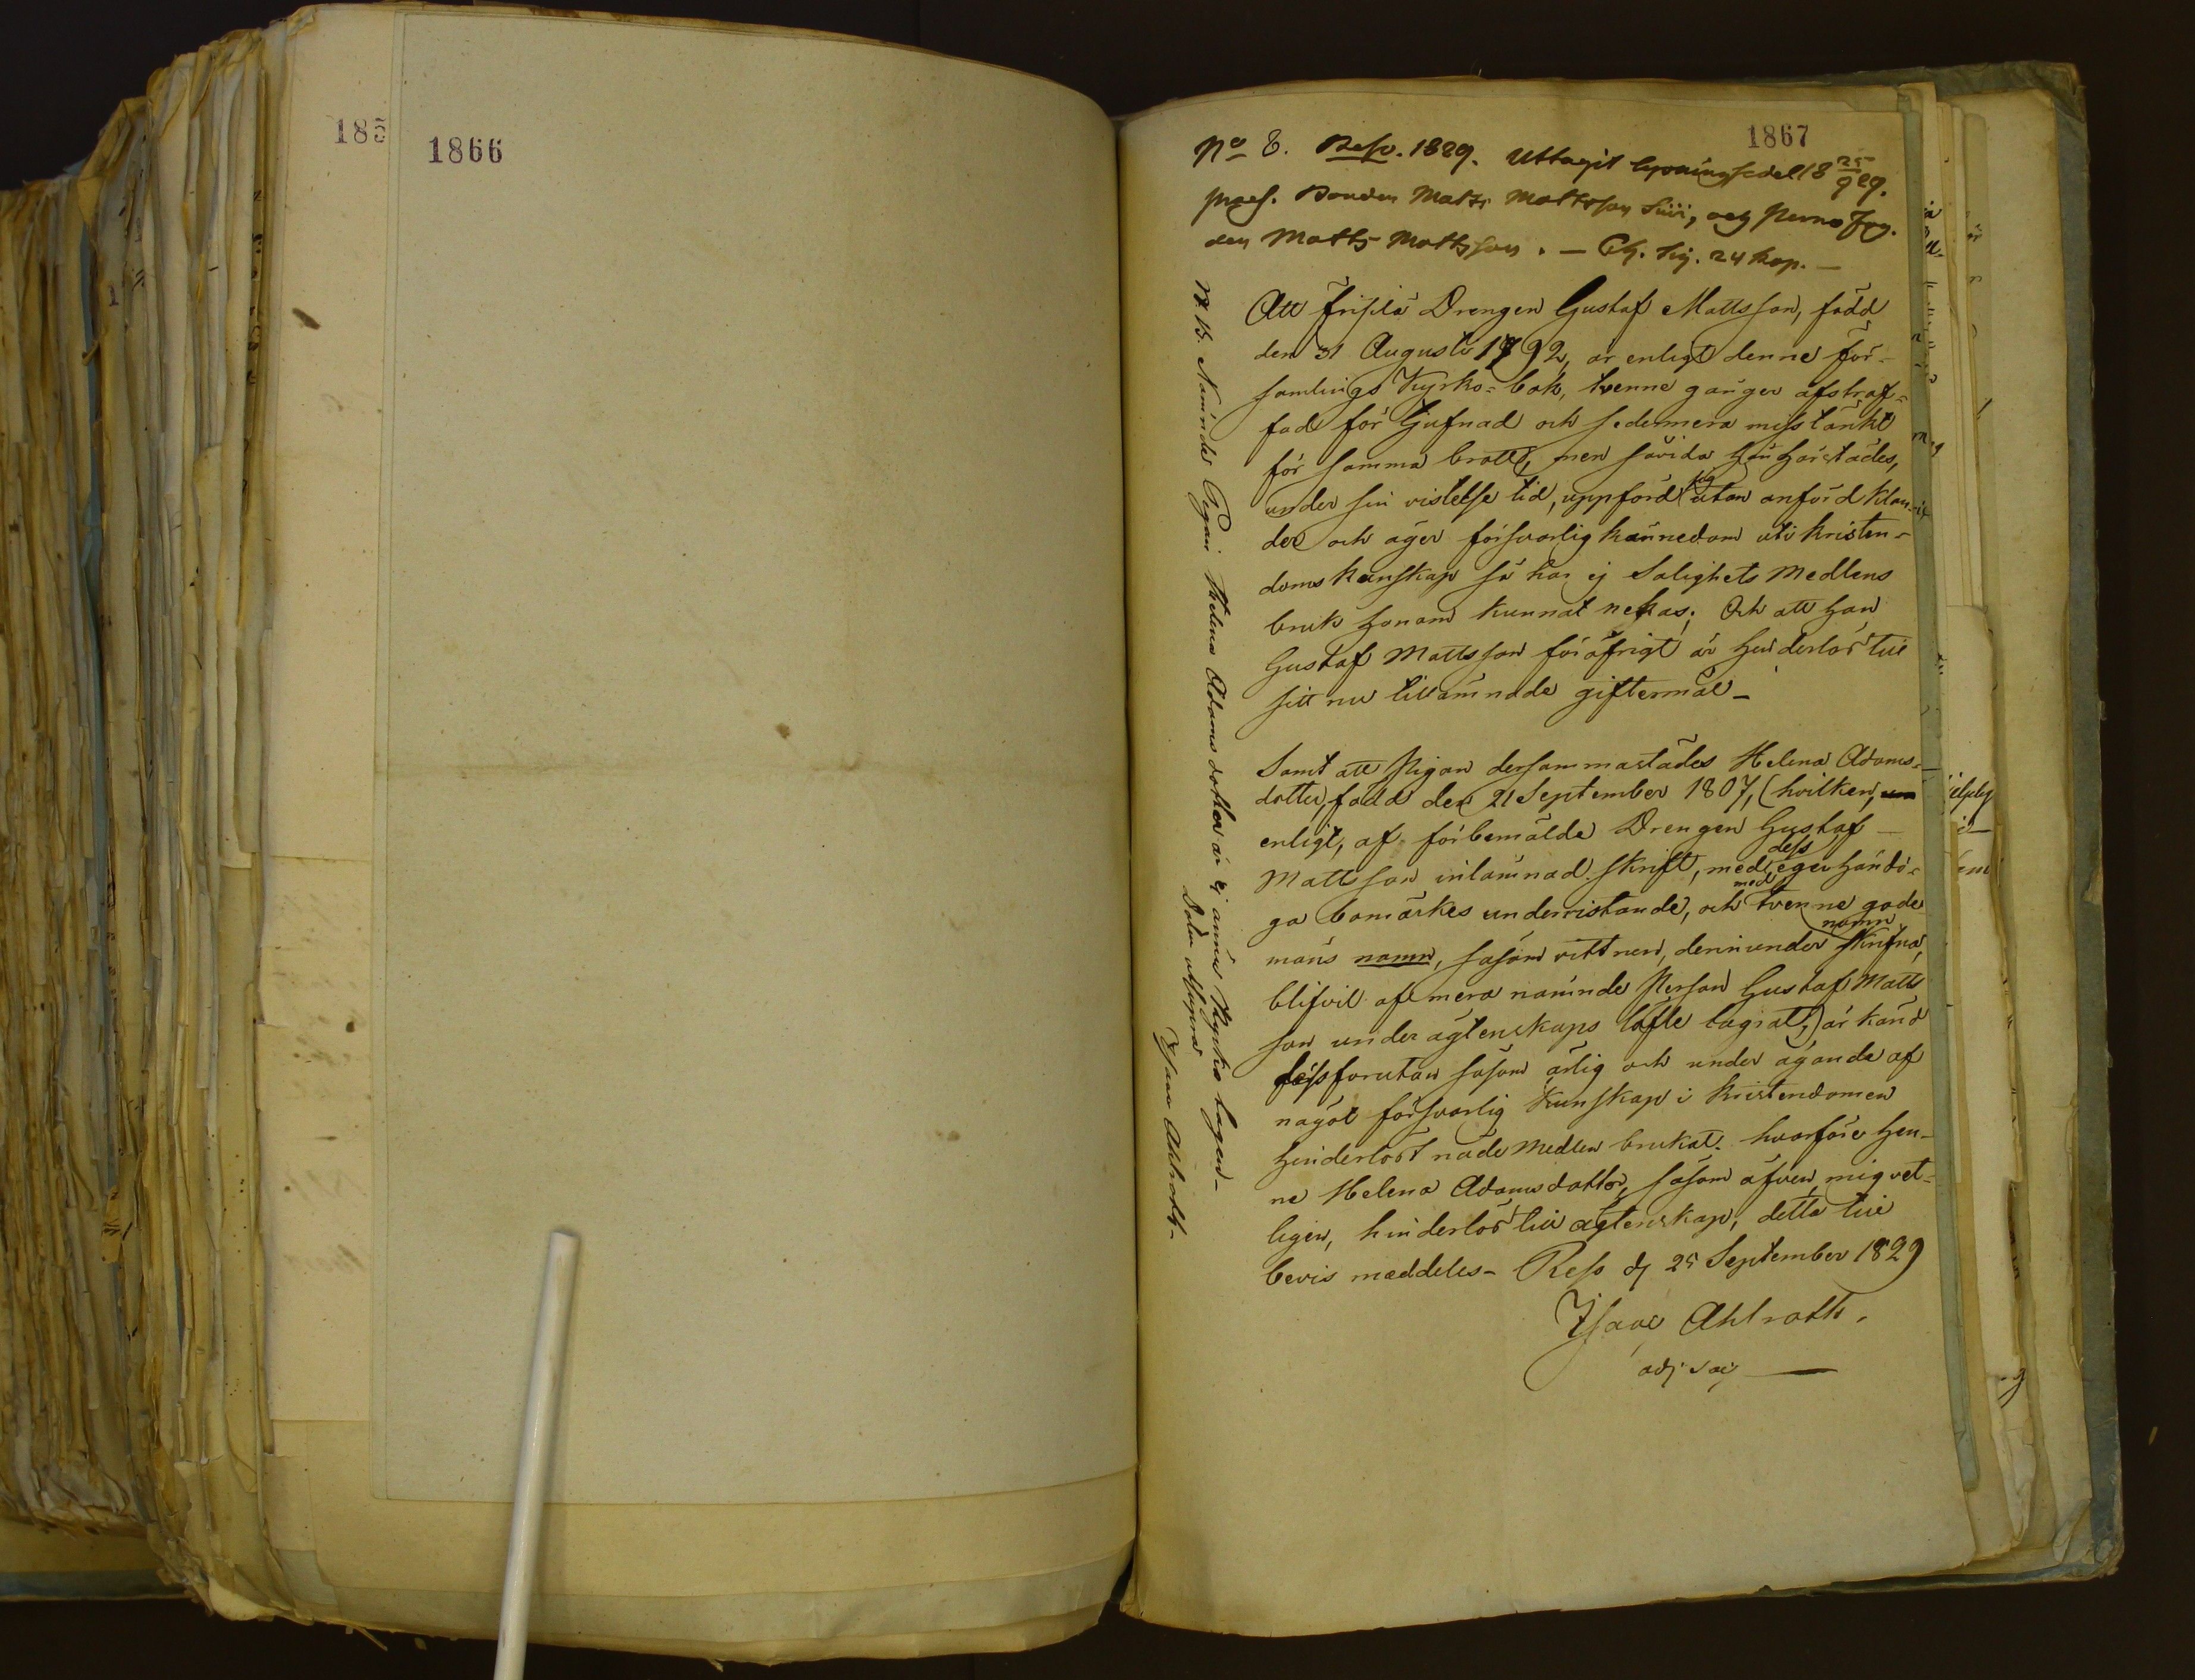 185
1866
1867
No 8. Resp. 1829. Uttagit lysningssedel 18 25/9 29.
præs. Bonden Matts Mattsson Siiri, och
den Matts Mattsson. — Ch. Sig. 24 kop. —
Att Drengen Gustaf Mattsson, född
den 31 Augusti 1792, är enligt denne för-
samlings Kyrko-bok, tvenne gånger afstraf-
fad för tjufnad och sedermera misstänkt
för samma brott, men såvida han härstädes,
under sin vistelse tid, uppförd sig utan anförd klan-
der och äger försvarlig kännedom uti kristen-
doms kunskap så har ej Salighets Medlens
bruk honom kunnat nekas; Och att han
Gustaf Mattsson föröfrigt är hinderlös till
sitt nu tillämnade giftermål —
Samt att Pigan dersammastädes Helena Adams-
dotter, född den 21 September 1807, (hvilken,
enligt, af förbemälde Drengen Gustaf —
Mattsson inlämnad skrift, med dess egenhändi-
ga bomärkes underristande, och med tvenne gode
mäns namn, såsom vittnen, derinunder skrifna, namn
blifvit af mera nämnde Person Gustaf Matts
son under ägtenskaps löfte lägrat,) är känd
dessförutan såsom ärlig och under ägande af
någol försvarlig kunskap i kristendomen
hinderlöst nåde medlen brukat. hvarföre hen-
ne Helena Adamsdotter, såsom äfven mig vet-
ligen, hinderlös till ägtenskap, detta till
bevis meddeles — Reso d 25 September 1829
Isaac Ahlroth.
adj sac —
N.B. Nämnde Pigan Helena Adamsdotter är ej ännu Kyrko tagen —
Datum utsupra
Isaac Ahlroth